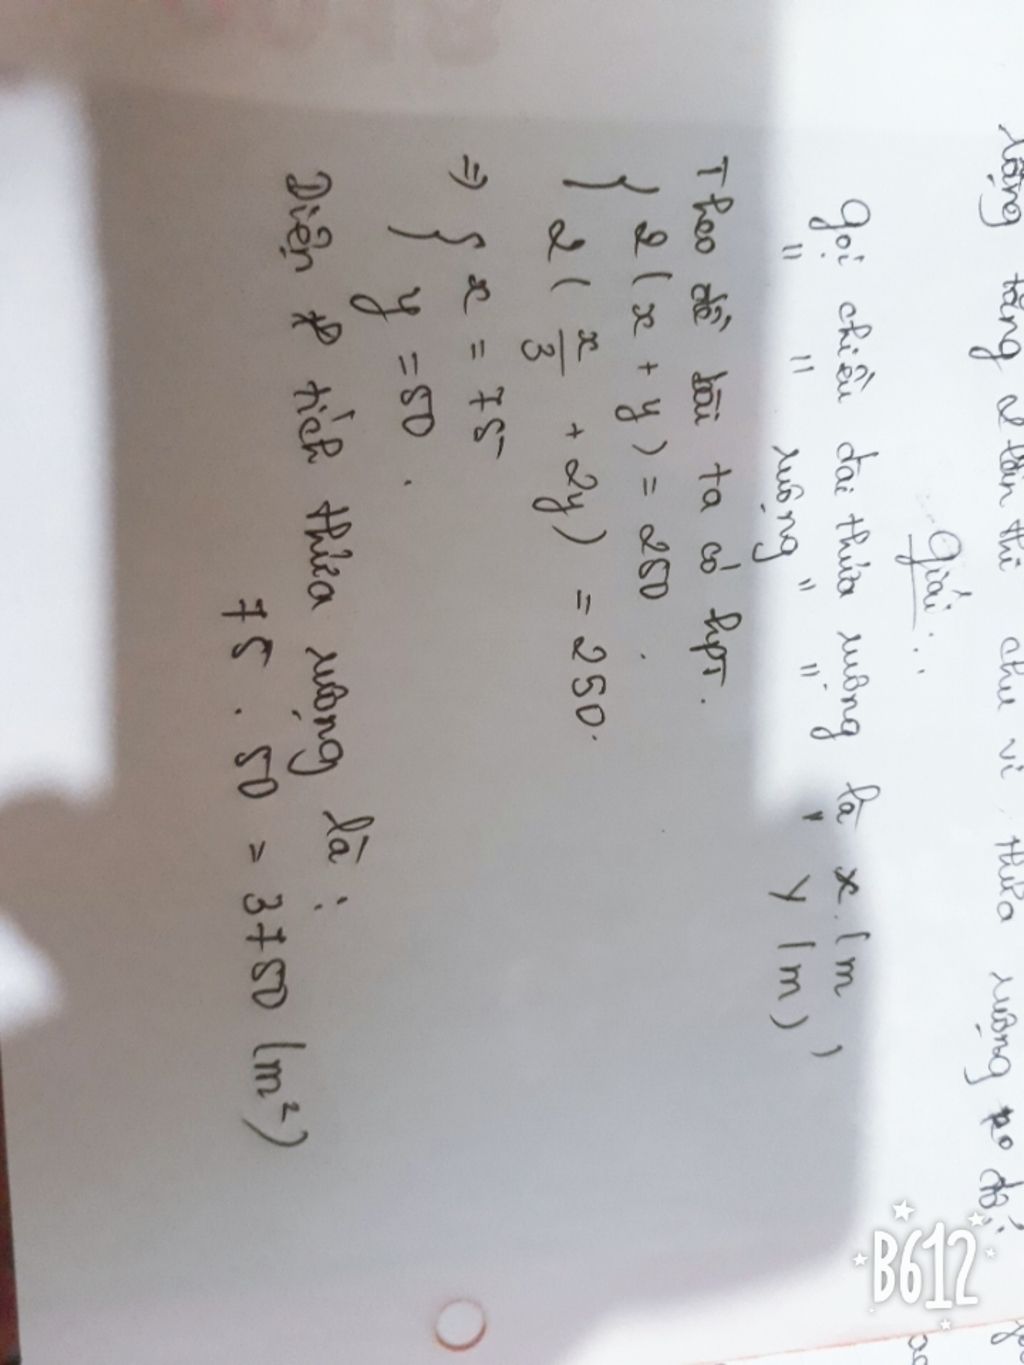 rộng tăng 2 lần thì chu vi thửa ruộng ko đổi
Giải:
Gọi chiều dài thửa ruộng là x (m)
" " rộng " " " y (m)
Theo đề bài ta có hpt.
{ 2(x + y) = 250.
2(x/3 + 2y) = 250.
=> { x = 75
y = 50.
Diện tích thửa ruộng là:
75 . 50 = 3750 (m²)
B612